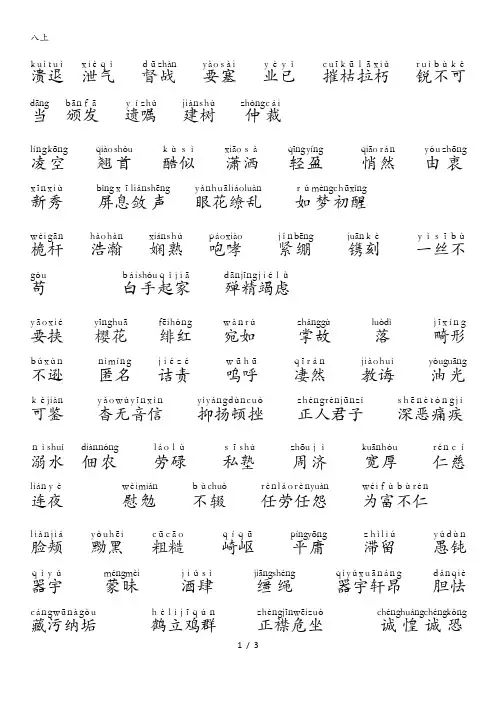 八上
kuìtuì xièqì dūzhàn yàosài yèyǐ cuīkūlāxiǔ ruìbùkě
溃退 泄气 督战 要塞 业已 摧枯拉朽 锐不可
dāng bānfā yízhǔ jiànshù zhòngcái
当 颁发 遗嘱 建树 仲裁
língkōng qiáoshǒu kùsì xiāosǎ qīngyíng qiǎorán yóuzhōng
凌空 翘首 酷似 潇洒 轻盈 悄然 由衷
xīnxiù bǐngxīliǎnshēng yǎnhuāliáoluàn rúmèngchūxǐng
新秀 屏息敛声 眼花缭乱 如梦初醒
wéigān hàohàn xiánshú páoxiào jǐnbēng juānkè yìsībù
桅杆 浩瀚 娴熟 咆哮 紧绷 镌刻 一丝不
gǒu báishǒuqǐjiā dānjīngjiélǜ
苟 白手起家 殚精竭虑
yāoxié yīnghuā fēihóng wǎnrú zhǎnggù luòdì jīxíng
要挟 樱花 绯红 宛如 掌故 落 畸形
búxùn nìmíng jiézé wūhū qīrán jiàohuì yóuguāng
不逊 匿名 诘责 呜呼 凄然 教诲 油光
kějiàn yǎowúyīnxìn yìyángdùncuò zhèngrénjūnzǐ shēnètòngjí
可鉴 杳无音信 抑扬顿挫 正人君子 深恶痛疾
nìshuǐ diànnóng láolù sīshú zhōujì kuānhòu réncí
溺水 佃农 劳碌 私塾 周济 宽厚 仁慈
liányè wèimiǎn bùchuò rènláorènyuàn wéifùbùrén
连夜 慰勉 不辍 任劳任怨 为富不仁
liǎnjiá yǒuhēi cūcāo qíqū píngyōng zhìliú yúdùn
脸颊 黝黑 粗糙 崎岖 平庸 滞留 愚钝
qìyǔ méngmèi jiǔsì jiāngshéng qìyǔxuānáng dǎnqiè
器宇 蒙昧 酒肆 缰绳 器宇轩昂 胆怯
cángwūnàgòu hèlìjīqún zhèngjīnwēizuò chénghuángchéngkǒng
藏污纳垢 鹤立鸡群 正襟危坐 诚惶诚恐
1 / 3